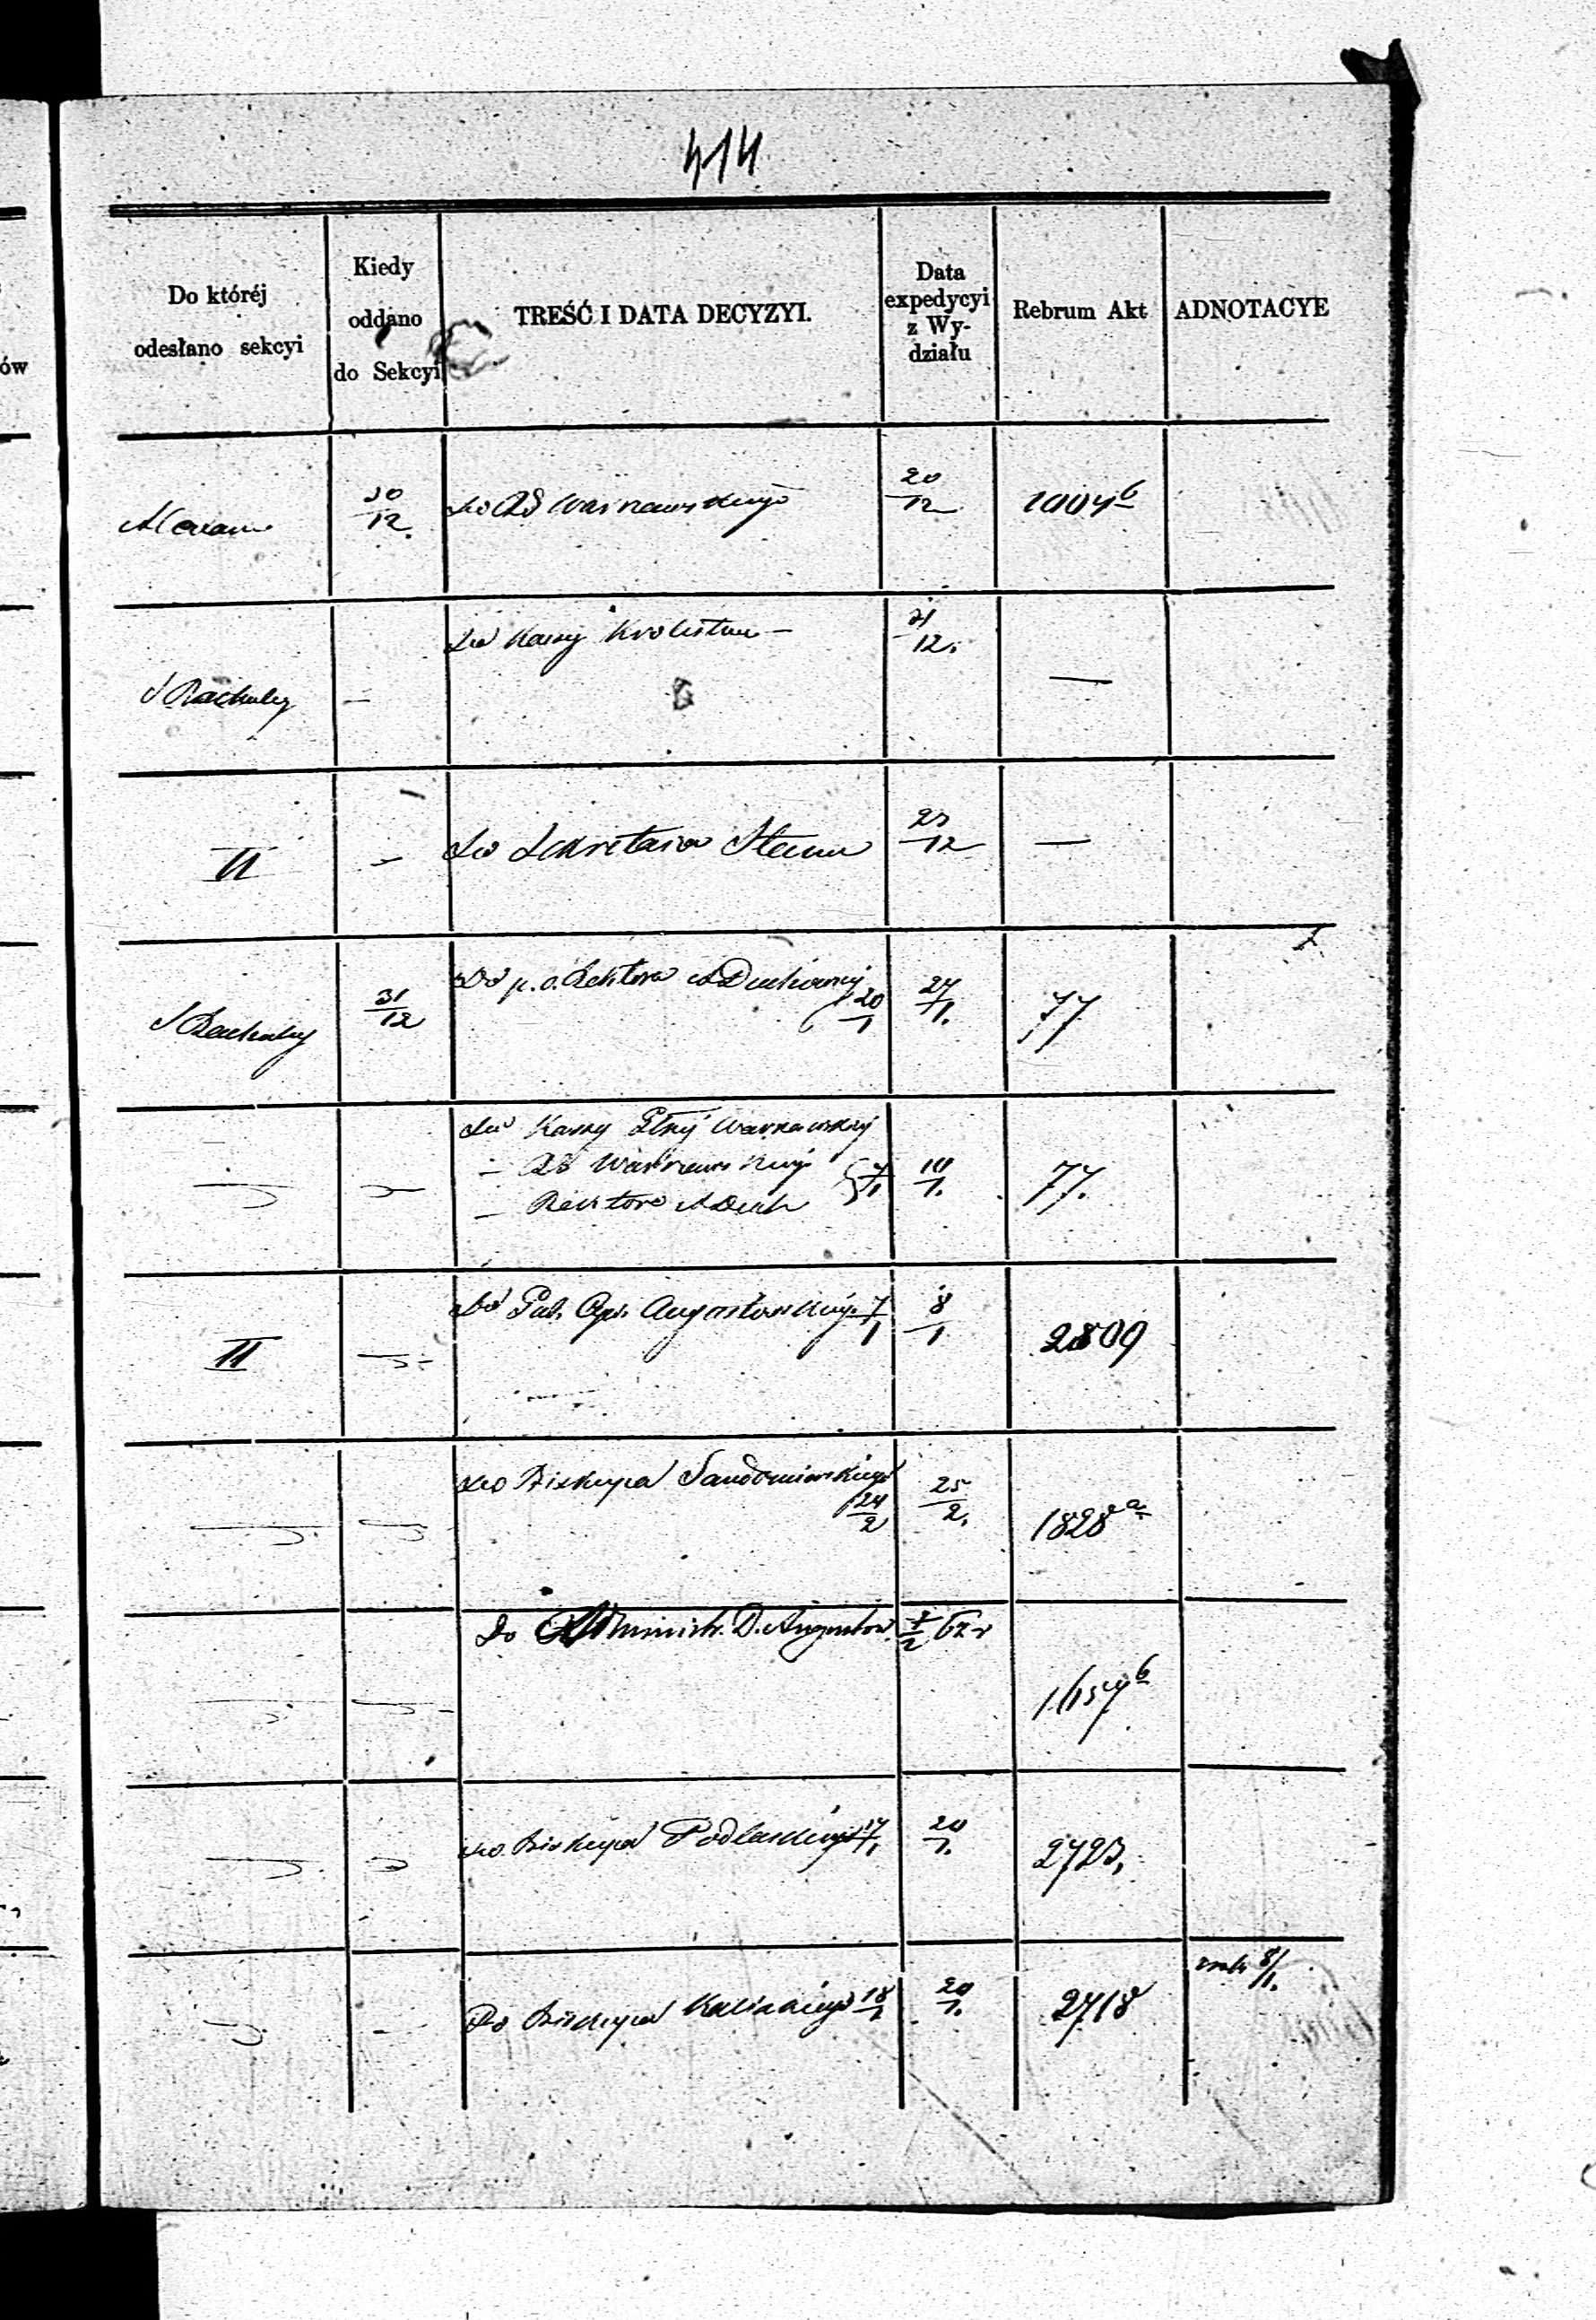 414
Do któréj
odesłano sekcyi
Kiedy
oddano
do Sekcyi
TREŚĆ I DATA DECYZYI.
Data
expedycyi
z Wy-
działu
Rebrum Akt
ADNOTACYE
ów
30/12
Do RG Warszawskiego
20/12
1004 b
S Rachuby
—
Do Kassy Królestwa —
31/12.
—
II
—
Do Sekretarza Stanu
23/12
—
S Rachuby
31/12
Do p. o. Rektora A Duchownej
20/1
27/1.
77
Do Kassy Głnej Warszawskiej
— RG Warszawskiego
— Rektora A Duch
7/1
10/1.
77.
II
Do Gub. Augustowskiego 7/1
8/1
2809
Do Biskupa Sandomierskiego
24/2
25/2.
1828 a
Do Administr. D. Augustow.
7/2 62 r
1657 b
Do Biskupa Podlaskiego 17/1.
20/1.
2723.
Do Biskupa Kaliskiego 18/1
20/1.
2718
8/1.